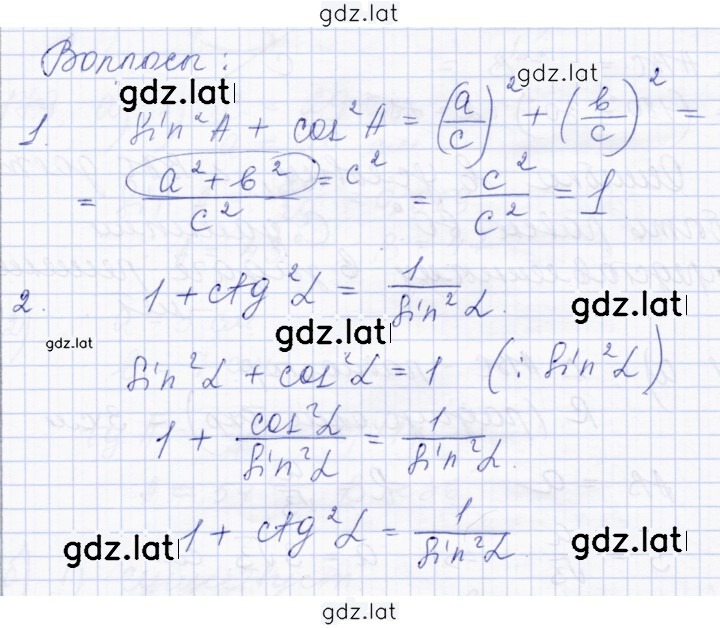 gdz.lat
Вопросы:
gdz.lat
gdz.lat
1. sin²A + cos²A = (a/c)² + (b/c)² =
= (a² + b²)/c² = c² = c²/c² = 1
2. 1 + ctg²α = 1/sin²α.
gdz.lat
gdz.lat
gdz.lat
sin²α + cos²α = 1 (: sin²α)
1 + cos²α/sin²α = 1/sin²α.
1 + ctg²α = 1/sin²α.
gdz.lat
gdz.lat
gdz.lat